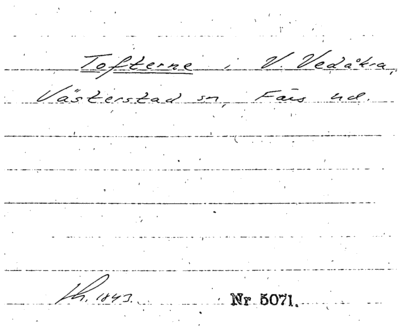 Tofterne i V. Vedåkra,
Västerstad sn, Färs hd.
Lh. 1843. Nr 5071.